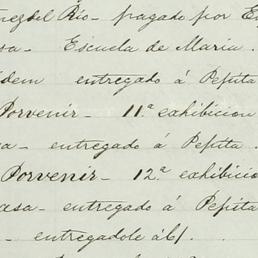 nez del Rio - pagado por E
sa - Escuela de Maria.
dem entregado á Pepita
Porvenir - 11.ª exhibicion
a - entregado á Pepita.
Porvenir - 12.ª exhibicio
asa - entregado á Pepita
- entregadole á